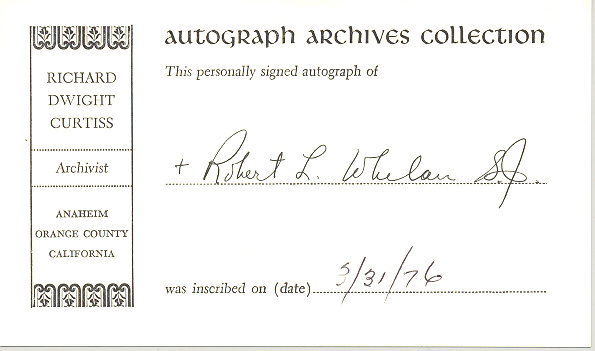 RICHARD
DWIGHT
CURTISS
Archivist
ANAHEIM
ORANGE COUNTY
CALIFORNIA
autograph archives collection
This personally signed autograph of
+ Robert L. Whelan S.J.
was inscribed on (date) 3/31/76